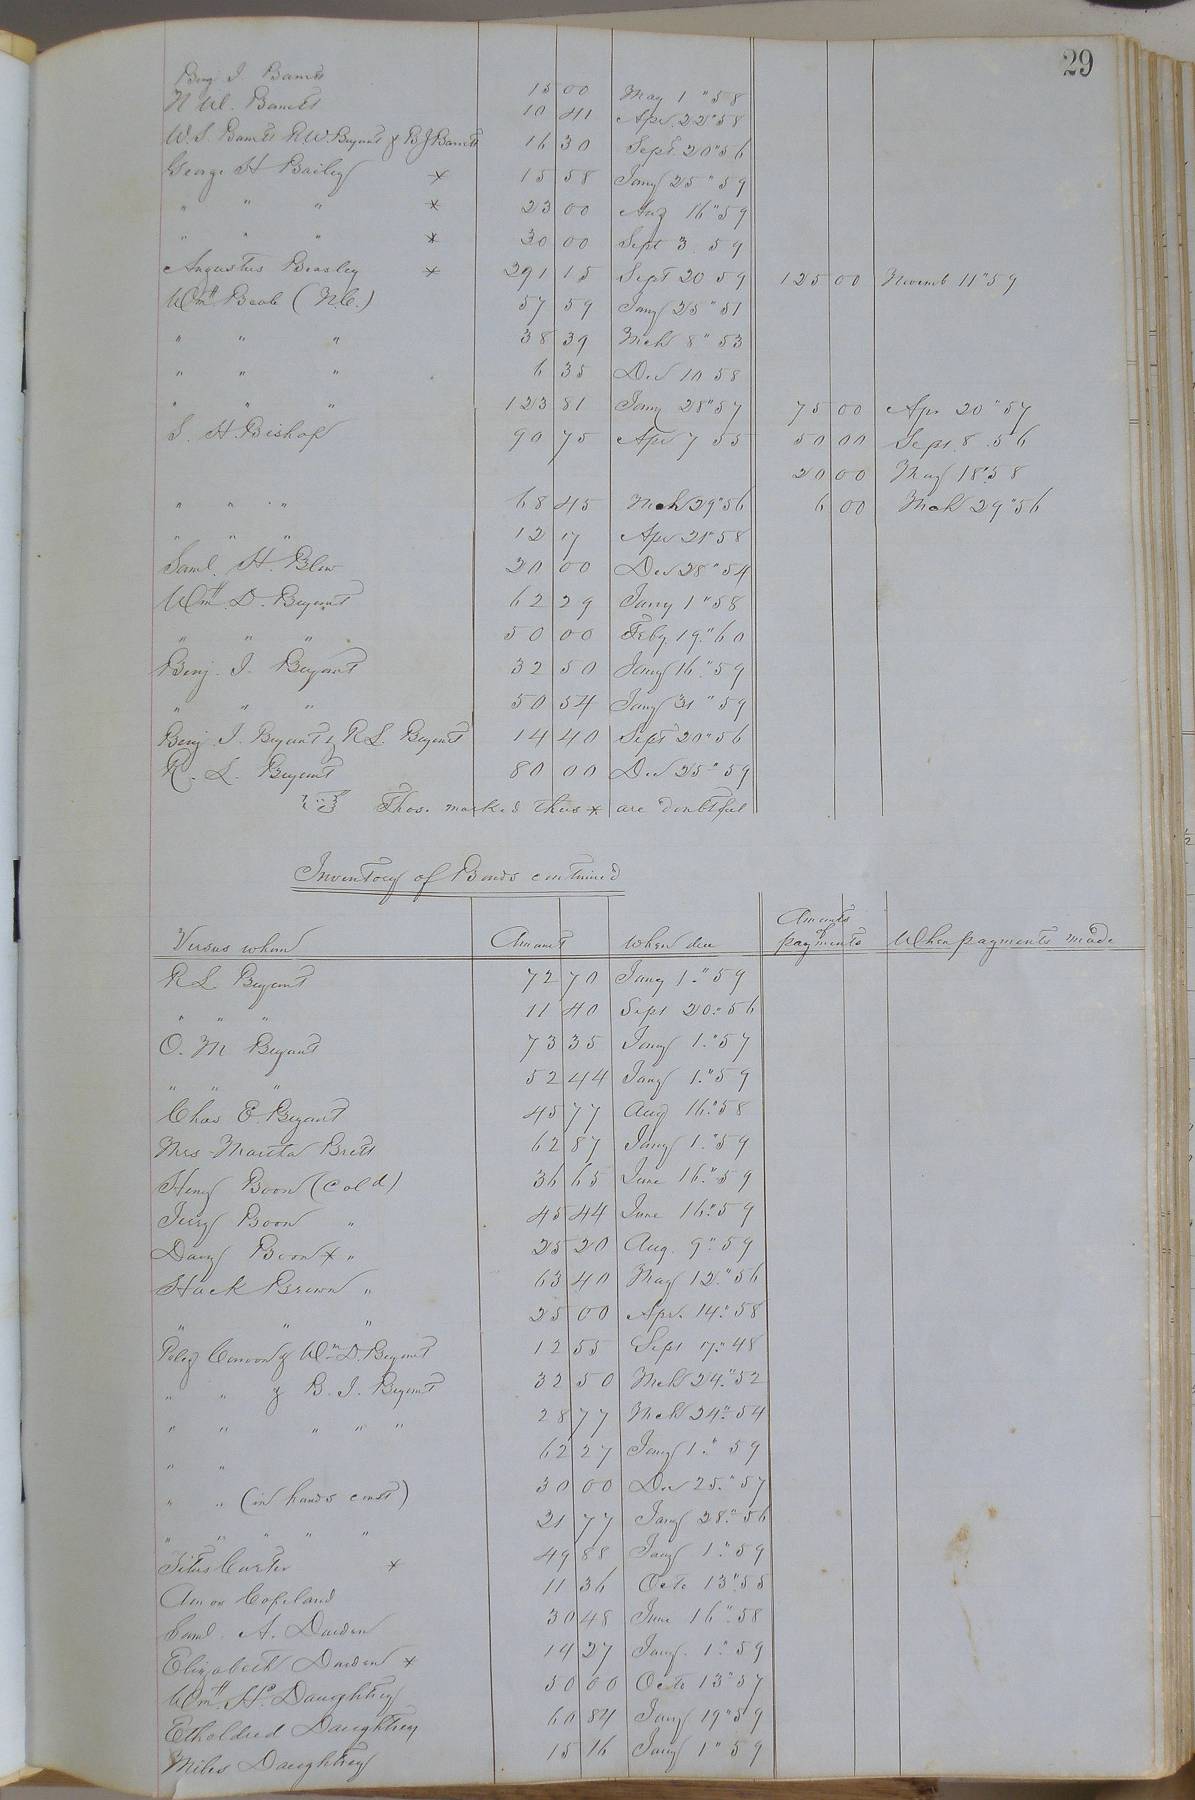 29
Benj. J. Barnes 15 00 May 1" 58
N W. Barnes 10 41 Apr. 22" 58
W. S. Barnes R W. Bryant & B J Barnes 16 30 Sept. 20" 56
George H Bailey * 15 58 Jany 25" 59
" " " * 23 00 Aug 16" 59
" " " * 30 00 Sept 3 59
Augustus Beasley * 291 15 Sept 20 59 125 00 Novemb 11" 59
Wm Beale (N.C.) 57 59 Jany 25" 51
" " " 38 39 Mch 8" 53
" " " 6 35 Dec 10 58
" " " 123 81 Jany 28" 57 75 00 Apr 20" 57
S. H. Bishop 90 75 Apr 7 55 50 00 Sept. 8. 56
20 00 May 18" 58
" " " 68 45 Mch 29" 56 6 00 Mch 29" 56
" " " 12 17 Apr 21" 58
Saml. H. Blow 20 00 Dec 28" 54
Wm. D. Bryant 62 29 Jany 1" 58
" " " 50 00 Feby. 19" 60
Benj. J. Bryant 32 50 Jany 16" 59
" " " 50 54 Jany 31" 59
Benj. J. Bryant & R L. Bryant 14 40 Sept 20" 56
R. L. Bryant 80 00 Dec 25" 59
Those marked thus * are doubtful
Inventory of Bonds continued
Versus whom Amount When due Amounts of payments When payments made
R L Bryant 72 70 Jany 1." 59
" " " 11 40 Sept 20." 56
O. M Bryant 73 35 Jany 1." 57
" " " 52 44 Jany 1." 59
Chas E. Bryant 45 77 Aug 16." 58
Mrs Martha Brett 62 87 Jany 1." 59
Heny Boon (Cold) 36 65 June 16." 59
Jerry Boon " 45 44 June 16." 59
Davy Boon * " 25 20 Aug. 9." 59
Hack Brown " 63 40 May 12." 56
" " " 25 00 Apr. 14." 58
Peleg Cowon & Wm. D. Bryant 12 55 Sept 17." 48
" " & B. J. Bryant 32 50 Mch 24." 52
" " " " " 28 77 Mch 24." 54
" " 62 27 Jany 1." 59
" " (in hands const) 30 00 Dec 25." 57
" " " " " 21 77 Jany 28." 56
Titus Carter * 49 88 Jany 1." 59
Amos Copeland 11 36 Octo 13" 55
Saml. A. Darden 30 48 June 16." 58
Elizabeth Darden * 14 27 Jany. 1." 59
Wm. H. Daughtrey 50 00 Octo 13" 57
Etheldred Daughtrey 60 84 Jany 19" 59
Miles Daughtrey 15 16 Jany 1" 59